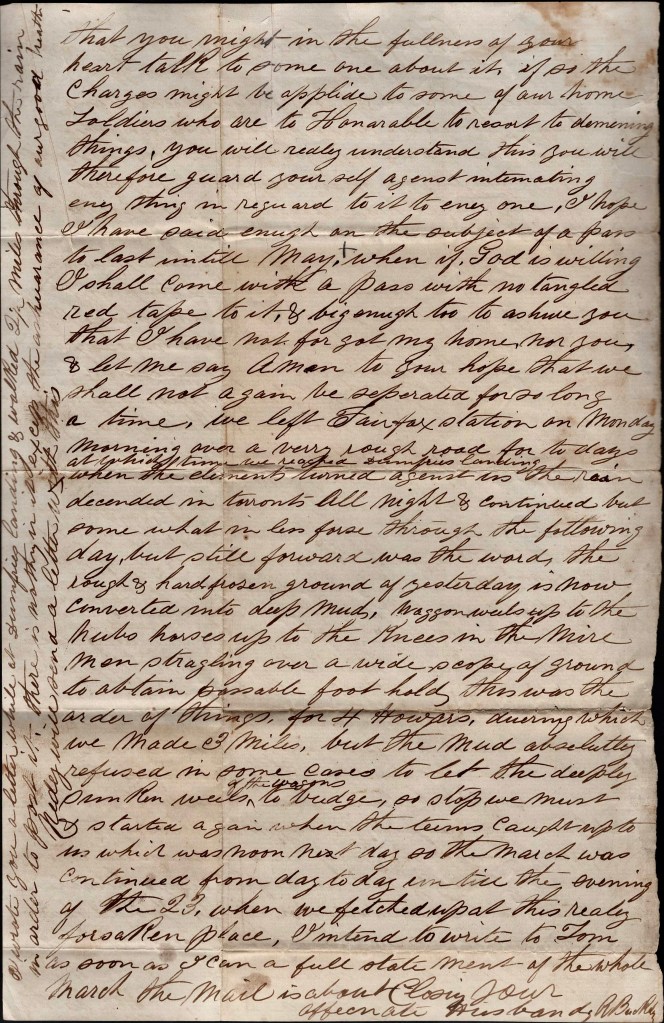 that you might in the fullness of your
heart talk to some one about it, if so the
Charges might be applide to some of our home
Soldiers who are to Honarable to resort to demening
things, you will realy understand this you will
therefore guard your self agenst intemating
eney thing in reguard to it to eney one, I hope
I have said enugh on the subject of a pass
to last untill May, + when if God is willing
I shall come with a pass with no tangled
red tape to it, & big enugh too to ashure you
that I have not for got my home nor you,
& let me say Aman to your hope that we
shall not again be seperated for so long
a time, we left Fairfax station on Monday
morning over a verry rough road for to days
at which time we reached Dumfries landing
when the elements turned against us the rain
decended in torronts All night & continued but
some what in less forse through the following
day, but still forward was the word, the
rough & hard frosen ground of yesterday is now
Converted into deep Mud, waggon weels up to the
hubs horses up to the Knees in the Mire
Men stragling over a wide scope of ground
to obtain passable foot hold, this was the
order of things, for 4 Howars, duering which
we Made 3 Miles, but the Mud absolutley
refused in some cases to let the deeply
of the wagons
Sunken weels, to budge, so stop we must
& started again when the teems Caught up to
us which was noon next day so the March was
Continued from day to day un till the evening
of the 23, when we fetched up at this realy
forsaken place, I intend to write to Tom
as soon as I can a full state ment of the whole
March the Mail is about Closing your
affecnate Husband R Buckley
I wrote you a letter while at Dumfries landing & walked miles through the rain
in order to post it, there is nothing in it except the ashuarance of our good health
will send a letter with this